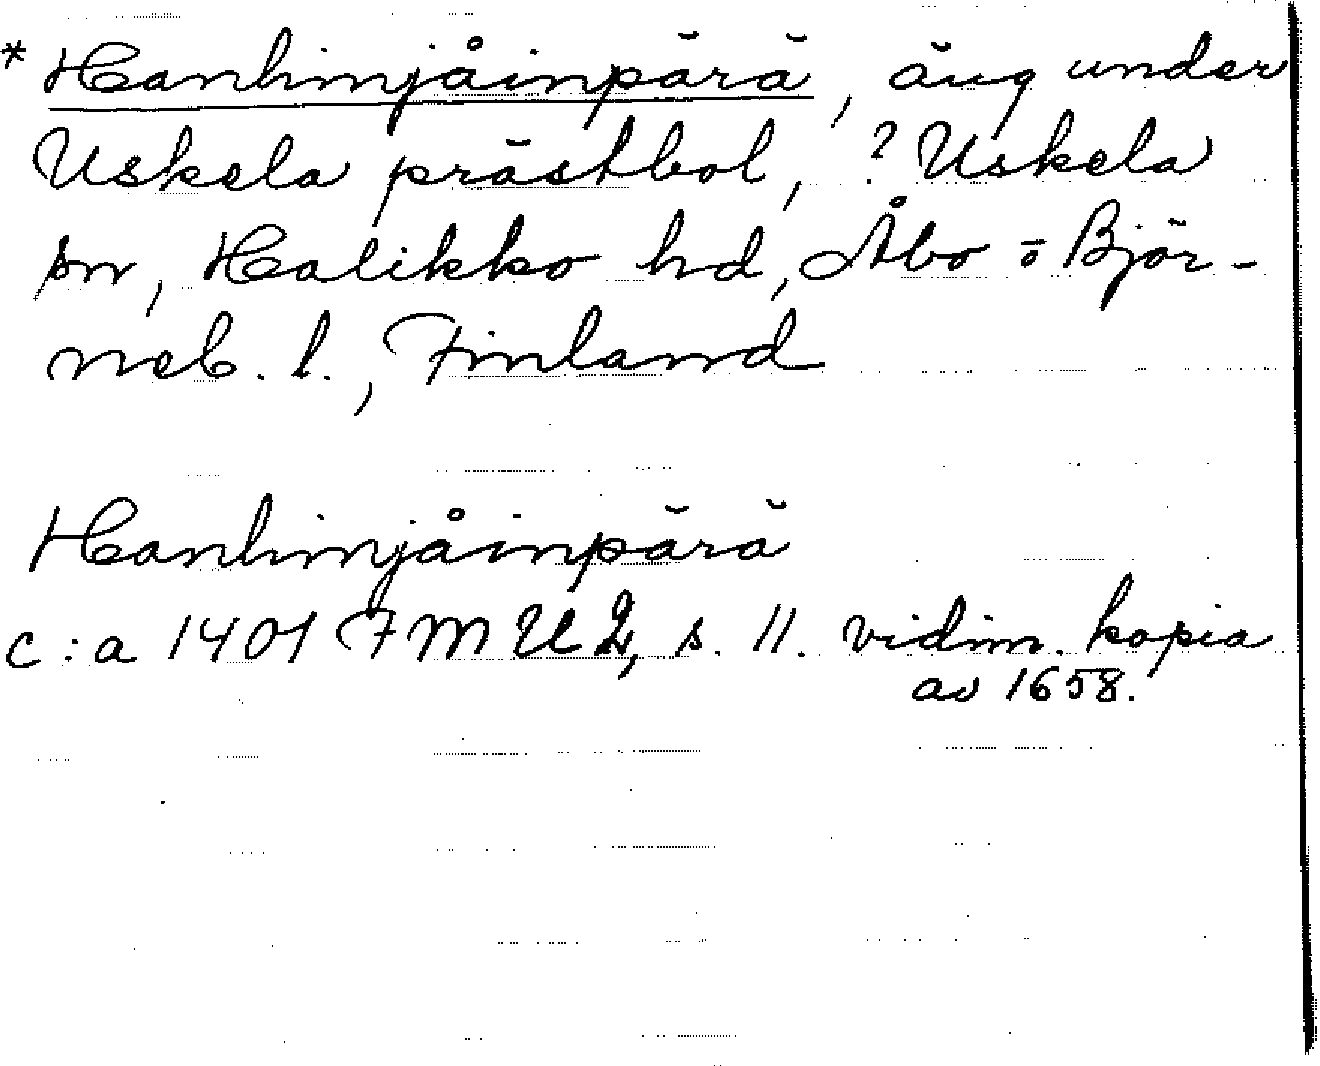 * Hanhinjåinpärä, äng under
Uskela prästbol, ? Uskela
sn, Halikko hd, Åbo o Björ-
neb. l., Finland
Hanhinjåinpärä
c:a 1401 FMU 2, s. 11. vidim. kopia
av 1658.